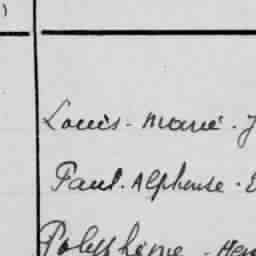 Louis - Marie - J
Paul - Alphonse -
Polyxène - Hen